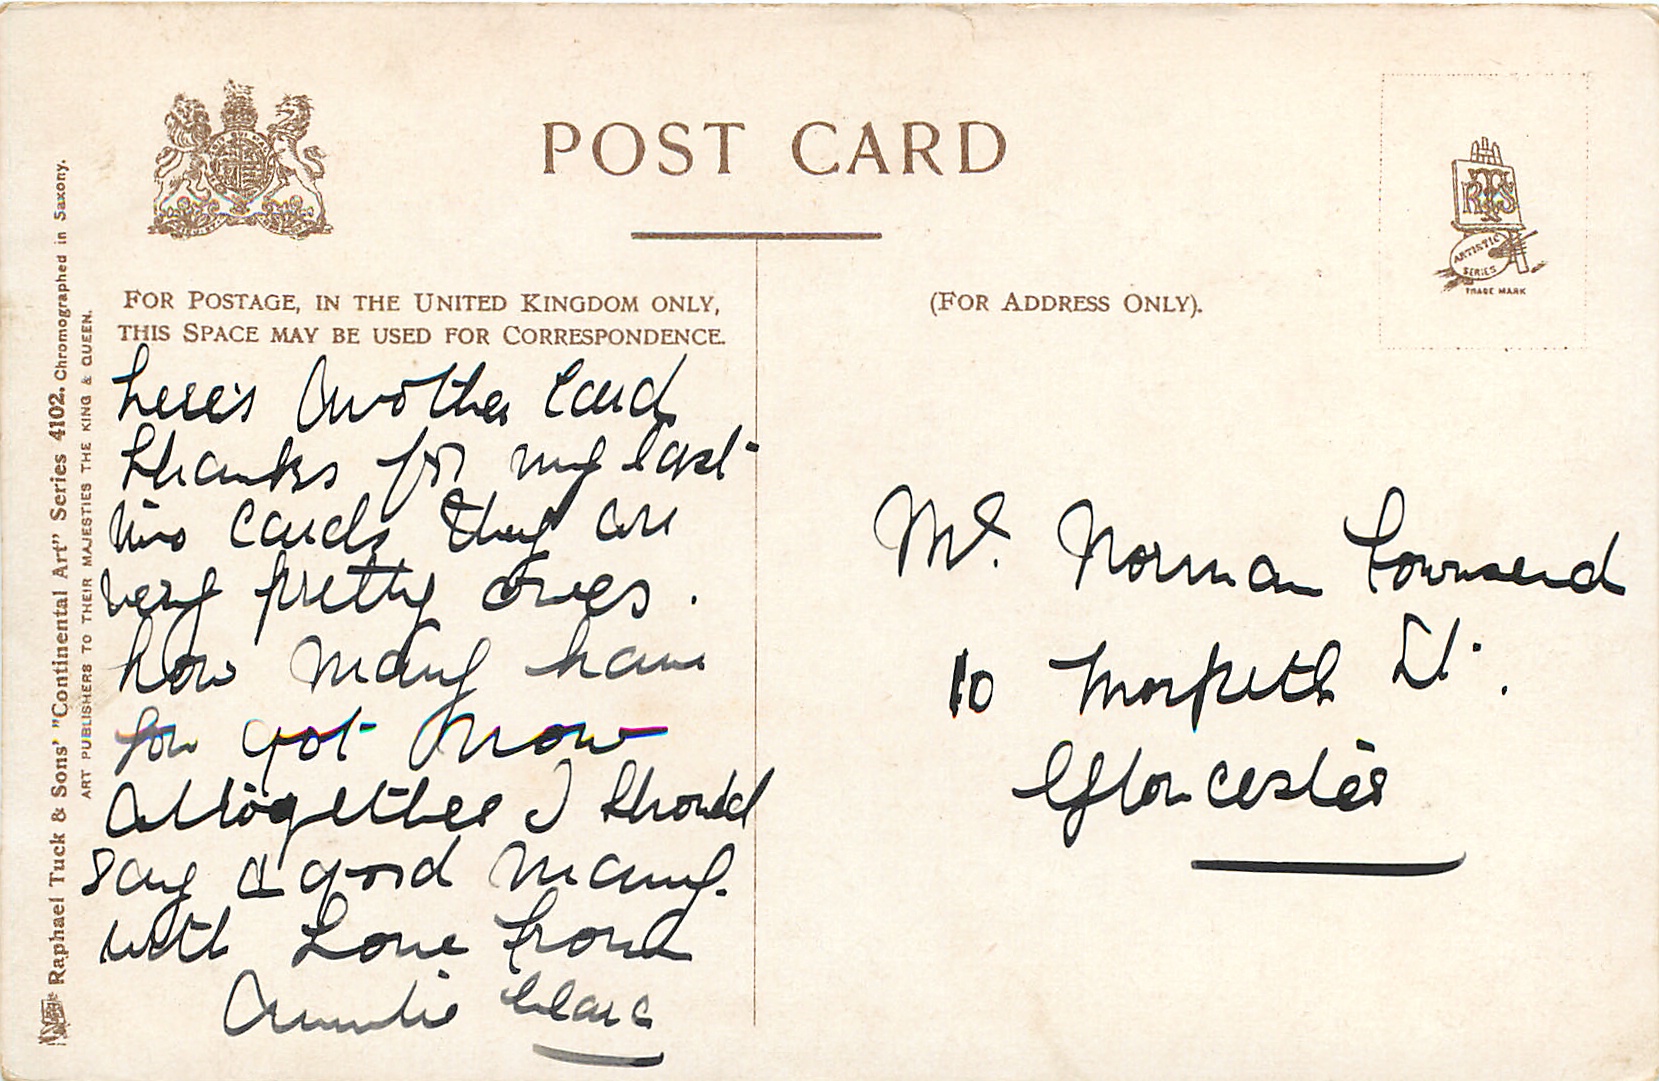 POST CARD
RTS
ARTISTIC
SERIES
TRADE MARK
FOR POSTAGE, IN THE UNITED KINGDOM ONLY,
THIS SPACE MAY BE USED FOR CORRESPONDENCE.
(FOR ADDRESS ONLY).
here's Another Card
thanks for my last
two cards they are
very pretty ones.
how many have
you got now
Altogether I should
say a good many.
with Love from
Auntie Clara
Mr. Norman Townsend
10 Morpeth St.
Gloucester
Raphael Tuck & Sons' "Continental Art" Series 4102. Chromographed in Saxony.
ART PUBLISHERS TO THEIR MAJESTIES THE KING & QUEEN.